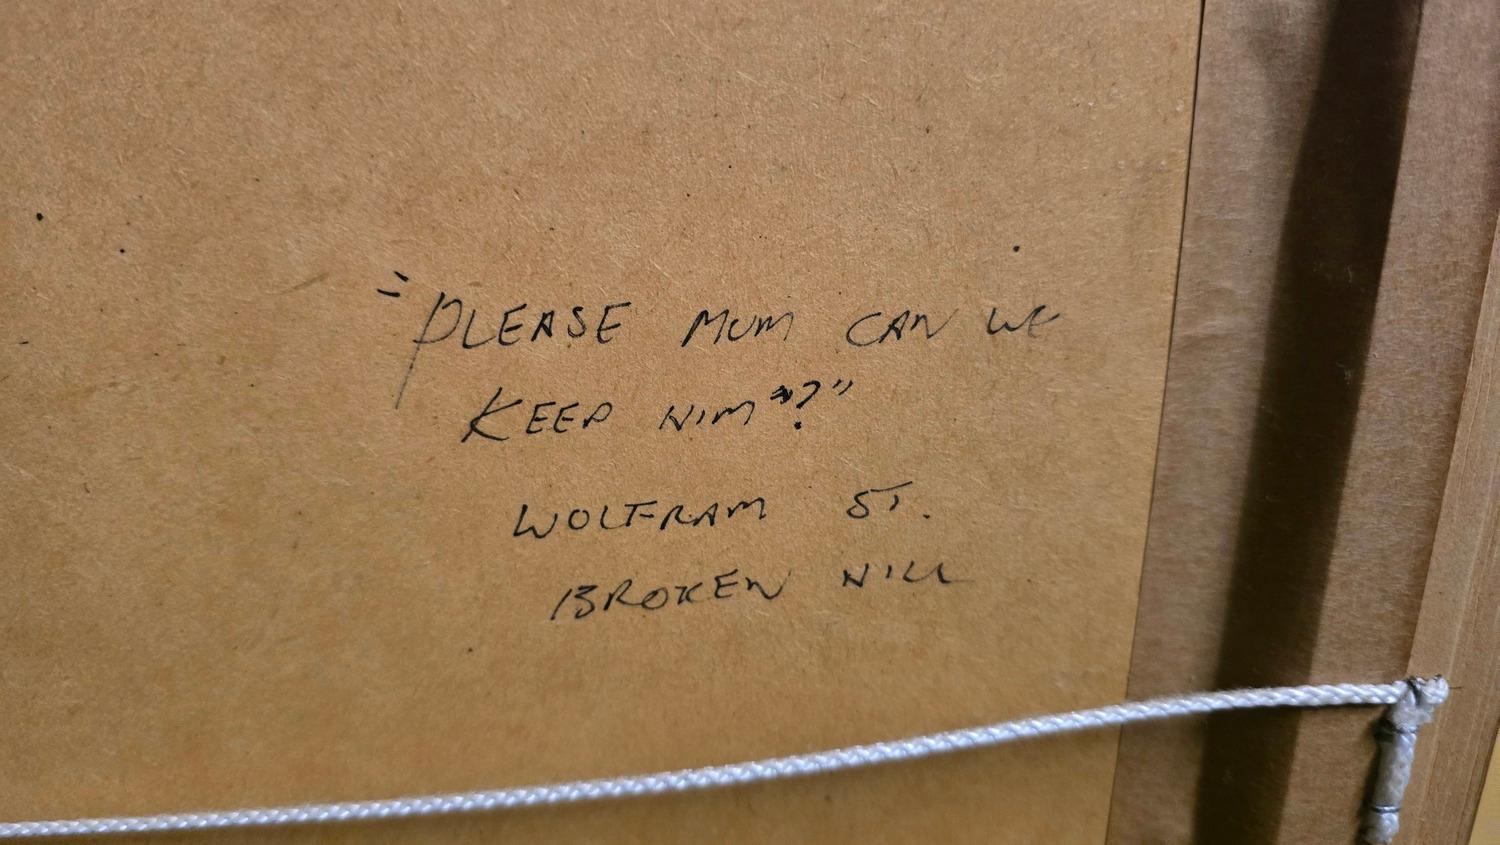 "PLEASE MUM CAN WE
KEEP HIM"?"
WOLFRAM ST.
BROKEN HILL